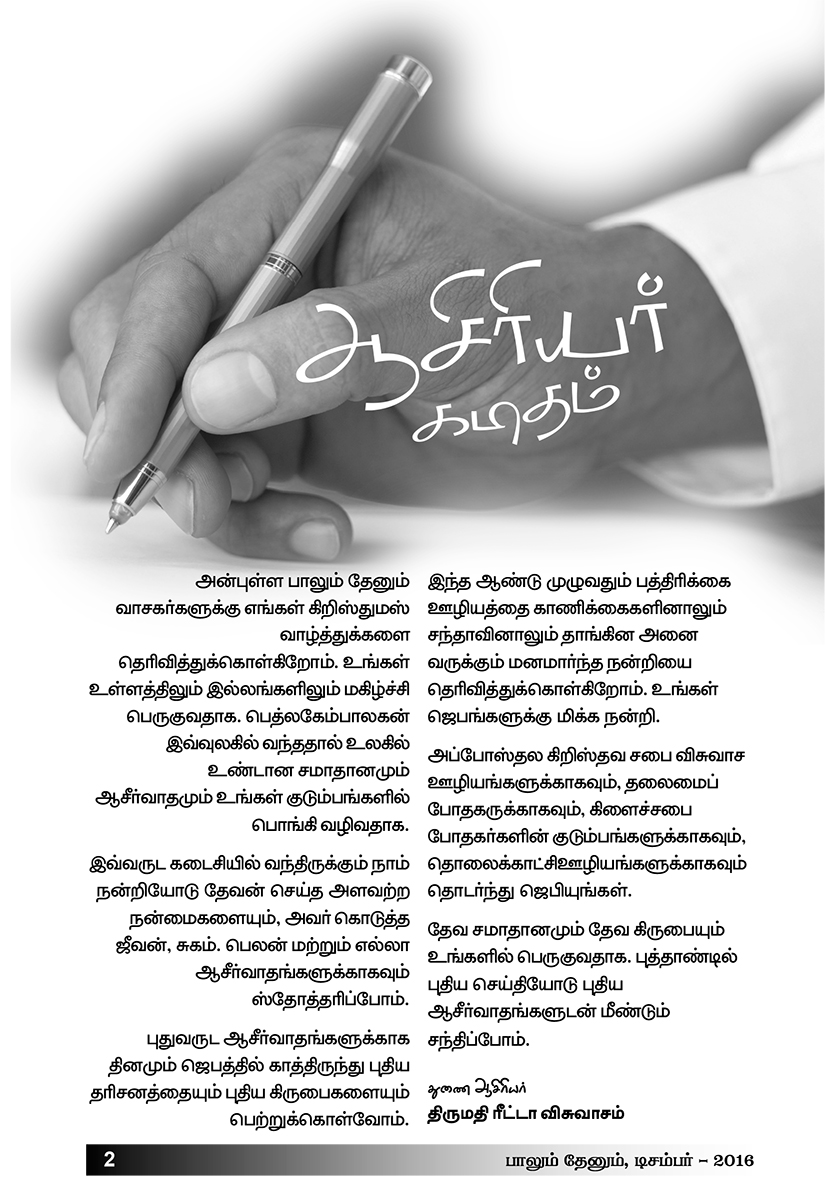 ஆசிரியர்
கடிதம்
அன்புள்ள பாலும் தேனும்
வாசகர்களுக்கு எங்கள் கிறிஸ்துமஸ்
வாழ்த்துக்களை
தெரிவித்துக்கொள்கிறோம். உங்கள்
உள்ளத்திலும் இல்லங்களிலும் மகிழ்ச்சி
பெருகுவதாக. பெத்லகேம்பாலகன்
இவ்வுலகில் வந்ததால் உலகில்
உண்டான சமாதானமும்
ஆசீர்வாதமும் உங்கள் குடும்பங்களில்
பொங்கி வழிவதாக.
இவ்வருட கடைசியில் வந்திருக்கும் நாம்
நன்றியோடு தேவன் செய்த அளவற்ற
நன்மைகளையும், அவர் கொடுத்த
ஜீவன், சுகம். பெலன் மற்றும் எல்லா
ஆசீர்வாதங்களுக்காகவும்
ஸ்தோத்தரிப்போம்.
புதுவருட ஆசீர்வாதங்களுக்காக
தினமும் ஜெபத்தில் காத்திருந்து புதிய
தரிசனத்தையும் புதிய கிருபைகளையும்
பெற்றுக்கொள்வோம்.
இந்த ஆண்டு முழுவதும் பத்திரிக்கை
ஊழியத்தை காணிக்கைகளினாலும்
சந்தாவினாலும் தாங்கின அனை
வருக்கும் மனமார்ந்த நன்றியை
தெரிவித்துக்கொள்கிறோம். உங்கள்
ஜெபங்களுக்கு மிக்க நன்றி.
அப்போஸ்தல கிறிஸ்தவ சபை விசுவாச
ஊழியங்களுக்காகவும், தலைமைப்
போதகருக்காகவும், கிளைச்சபை
போதகர்களின் குடும்பங்களுக்காகவும்,
தொலைக்காட்சிஊழியங்களுக்காகவும்
தொடர்ந்து ஜெபியுங்கள்.
தேவ சமாதானமும் தேவ கிருபையும்
உங்களில் பெருகுவதாக. புத்தாண்டில்
புதிய செய்தியோடு புதிய
ஆசீர்வாதங்களுடன் மீண்டும்
சந்திப்போம்.
துணை ஆசிரியர்
திருமதி ரீட்டா விசுவாசம்
2
பாலும் தேனும், டிசம்பர் – 2016